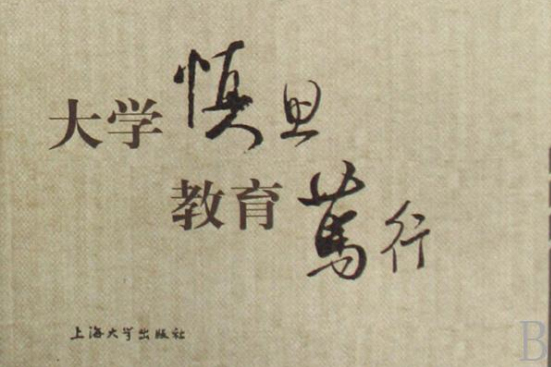 大学慎思
教育篤行
上海大学出版社
B